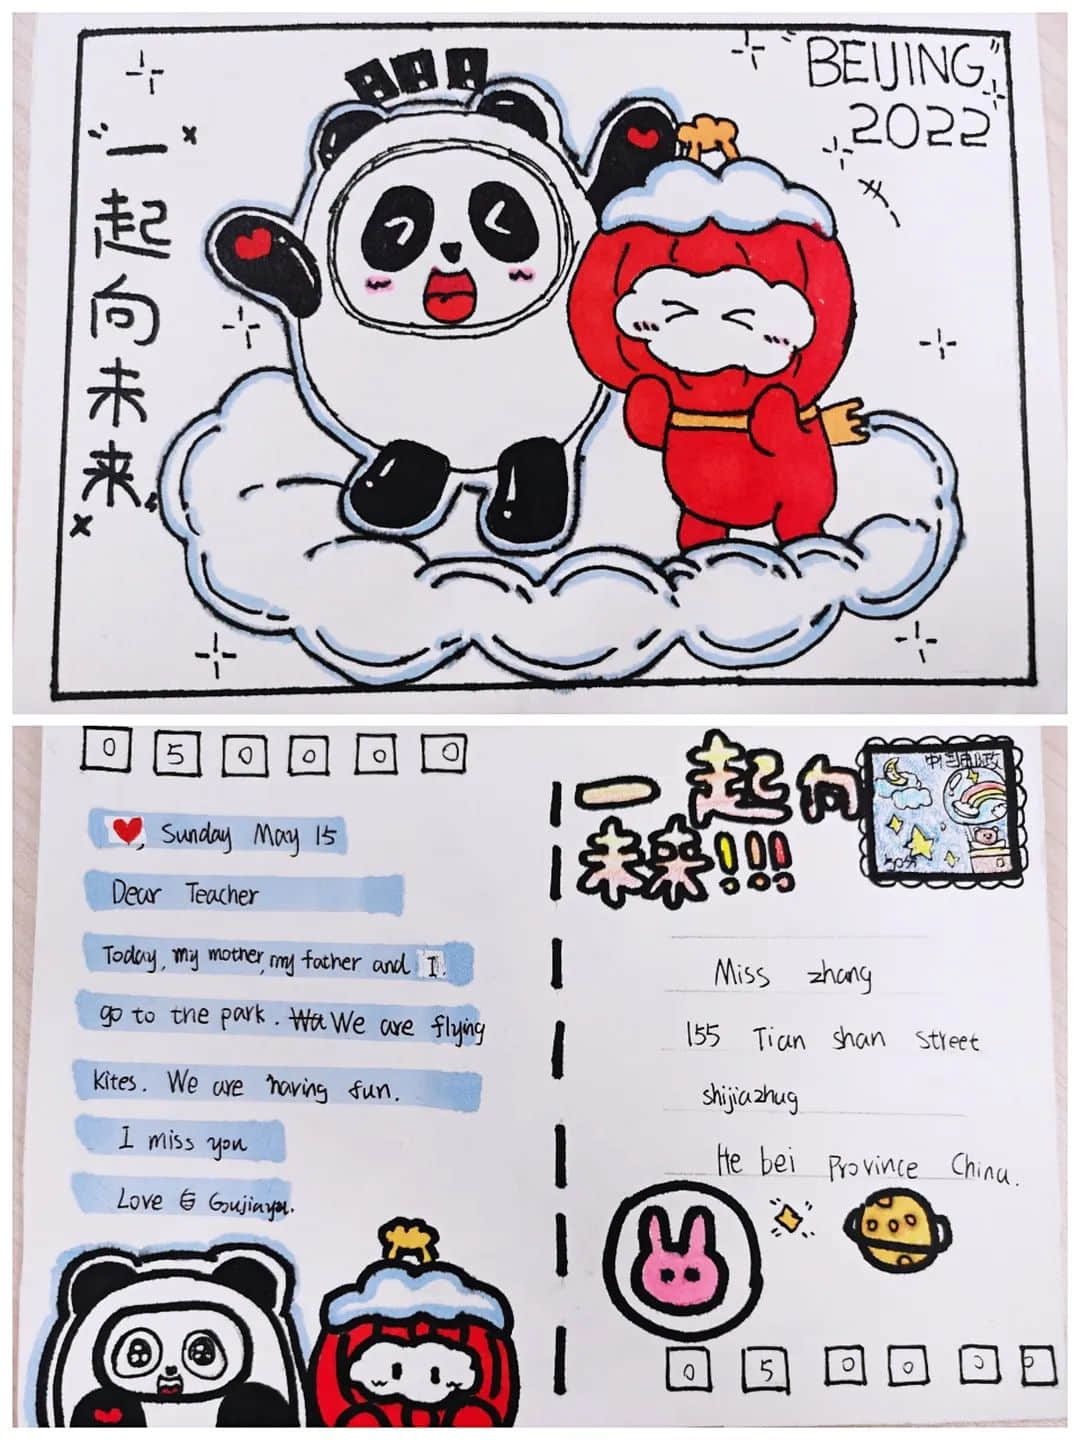 "BEIJING"
2022
"一起向未来"
0 5 0 0 0 0
, Sunday May 15
Dear Teacher
Today, my mother, my father and I
go to the park. We are flying
kites. We are having fun.
I miss you
Love
一起向
未来!!!
中国邮政
Miss zhang
155 Tian shan Street
shijiazhug
He bei Province China.
0 5 0 0 0 0